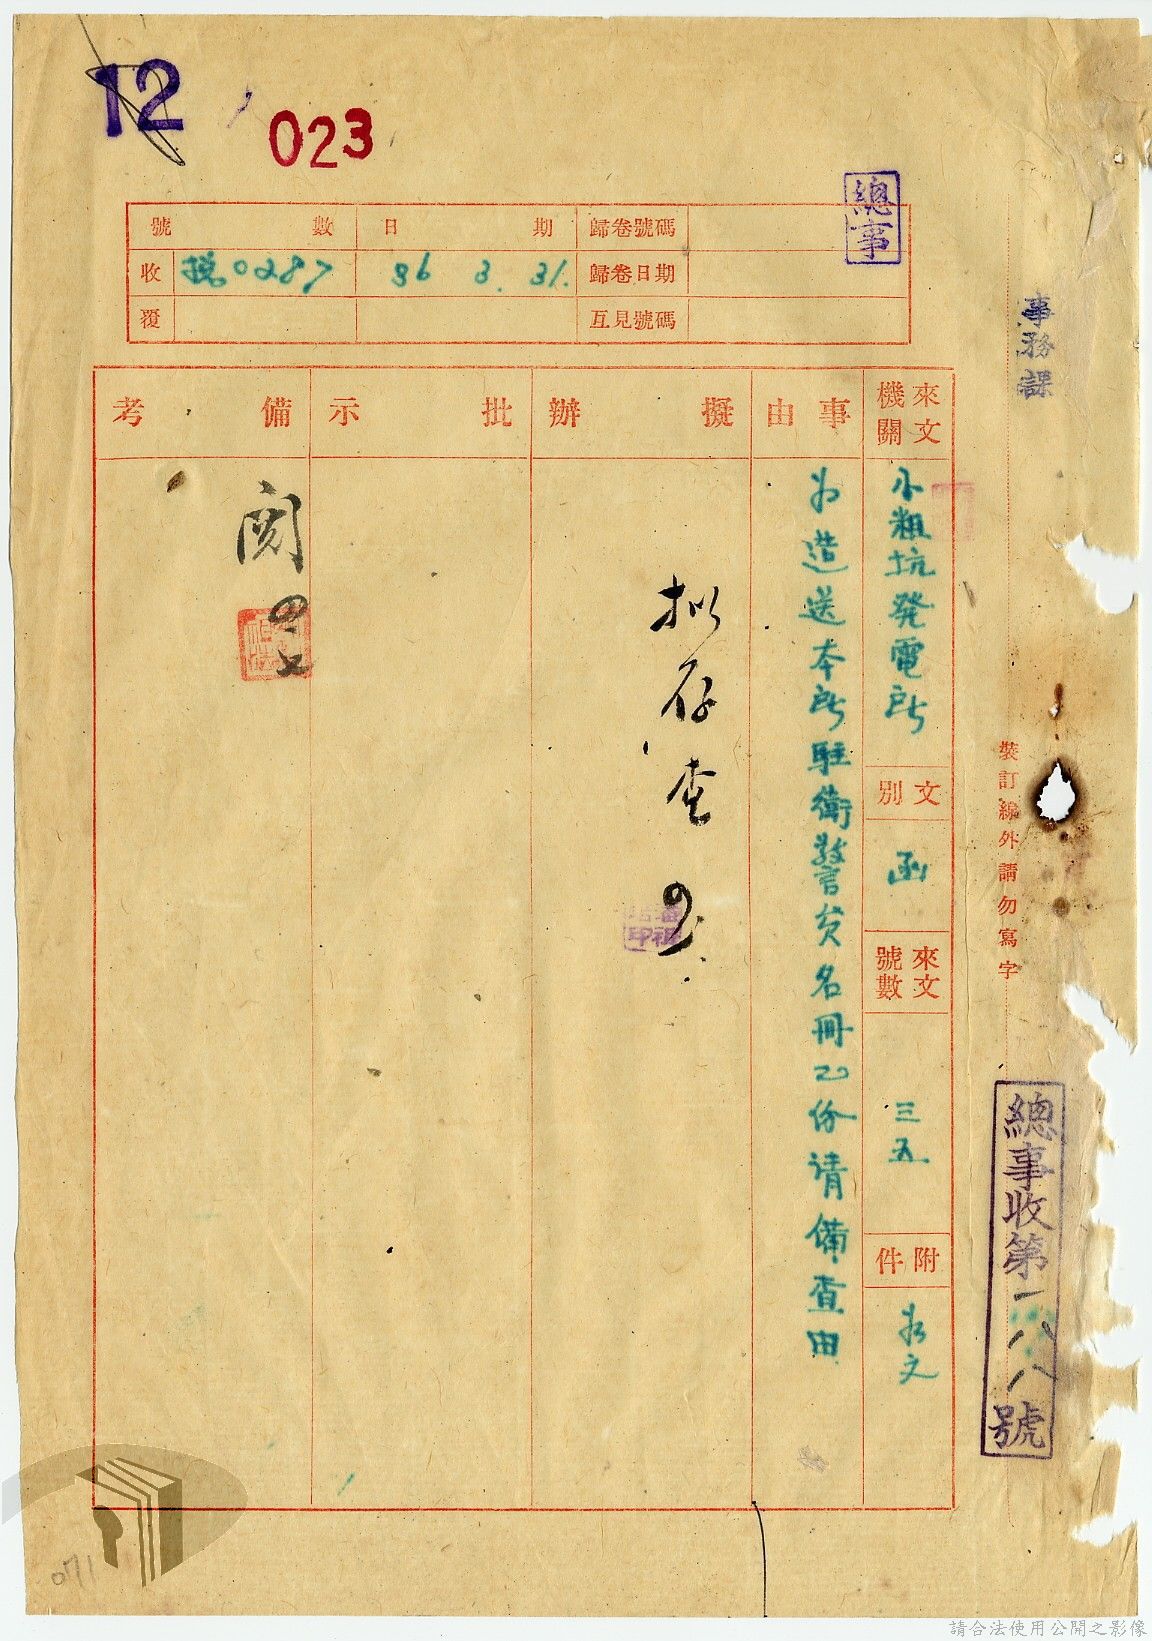 12
023
總事
號數
日期
歸卷號碼
收
0287
36 3. 31.
歸卷日期
覆
互見號碼
事務課
來文機關
小粗坑發電所
文別
函
來文號數
三五
附件
如文
事由
為造送本所駐衛警員名冊乙份請備查由
擬辦
拟存查
批示
備考
閱
裝訂線外請勿寫字
總事收第一八八號
071
請合法使用公開之影像